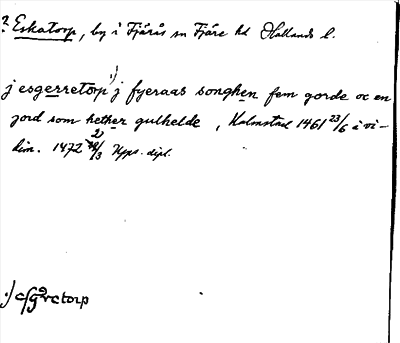 ? Eskatorp, by i Fjärås sn Fjäre hd Hallands l.
1)
j esgerretorp j fyeraas songhen fem gorde oc en
jord som hether gulhelde, Halmstad 1461 23/6 i vi-
2)
dim. 1472 /3 Upps. dipl.
1) esgeretorp